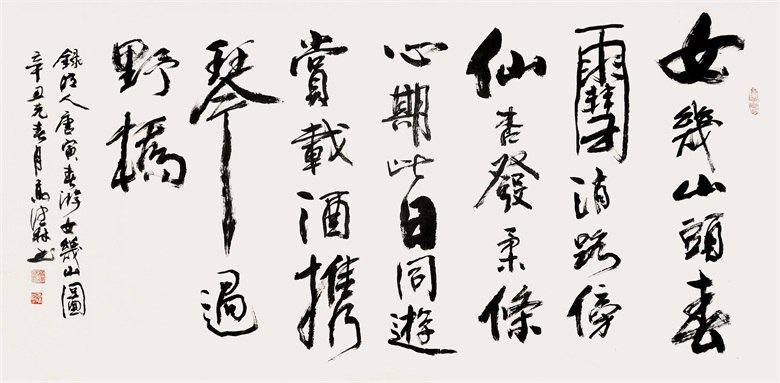 女幾山頭春
雪消路傍
仙杏發柔條
心期此日同遊
賞載酒携
琴過
野橋
錄明人唐寅春游女幾山圖
辛丑元春月馬 林书